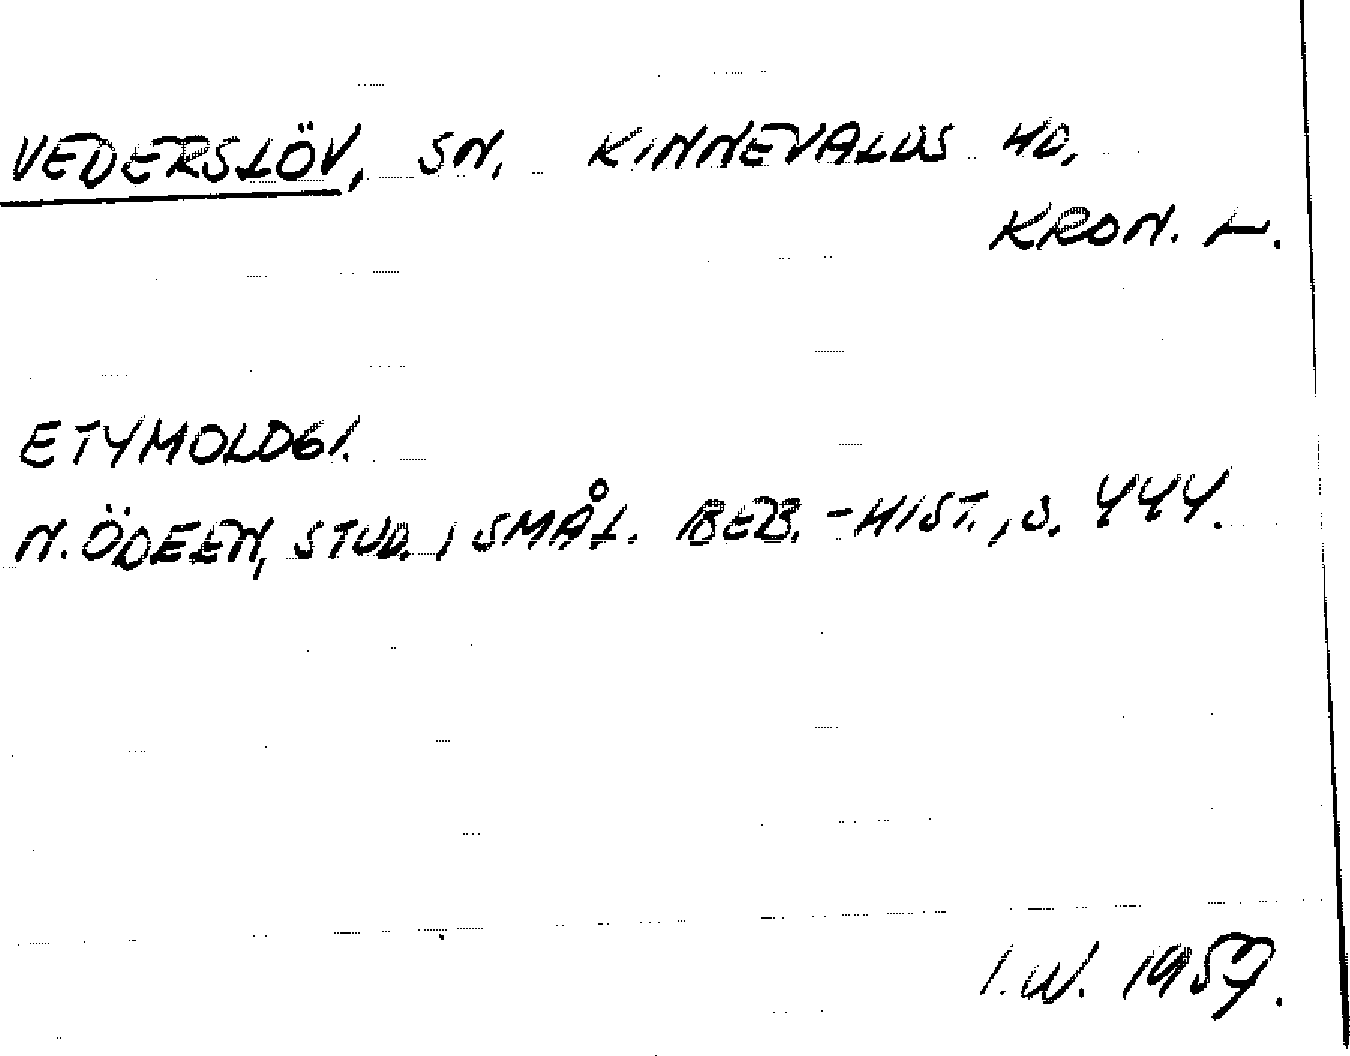 VEDERSLÖV, SN. KINNEVALDS HD,
KRON. L.
ETYMOLOGI.
N. ÖDEEN, STUD. I SMÅL. BEB.-HIST., S. 444.
I.W. 1957.